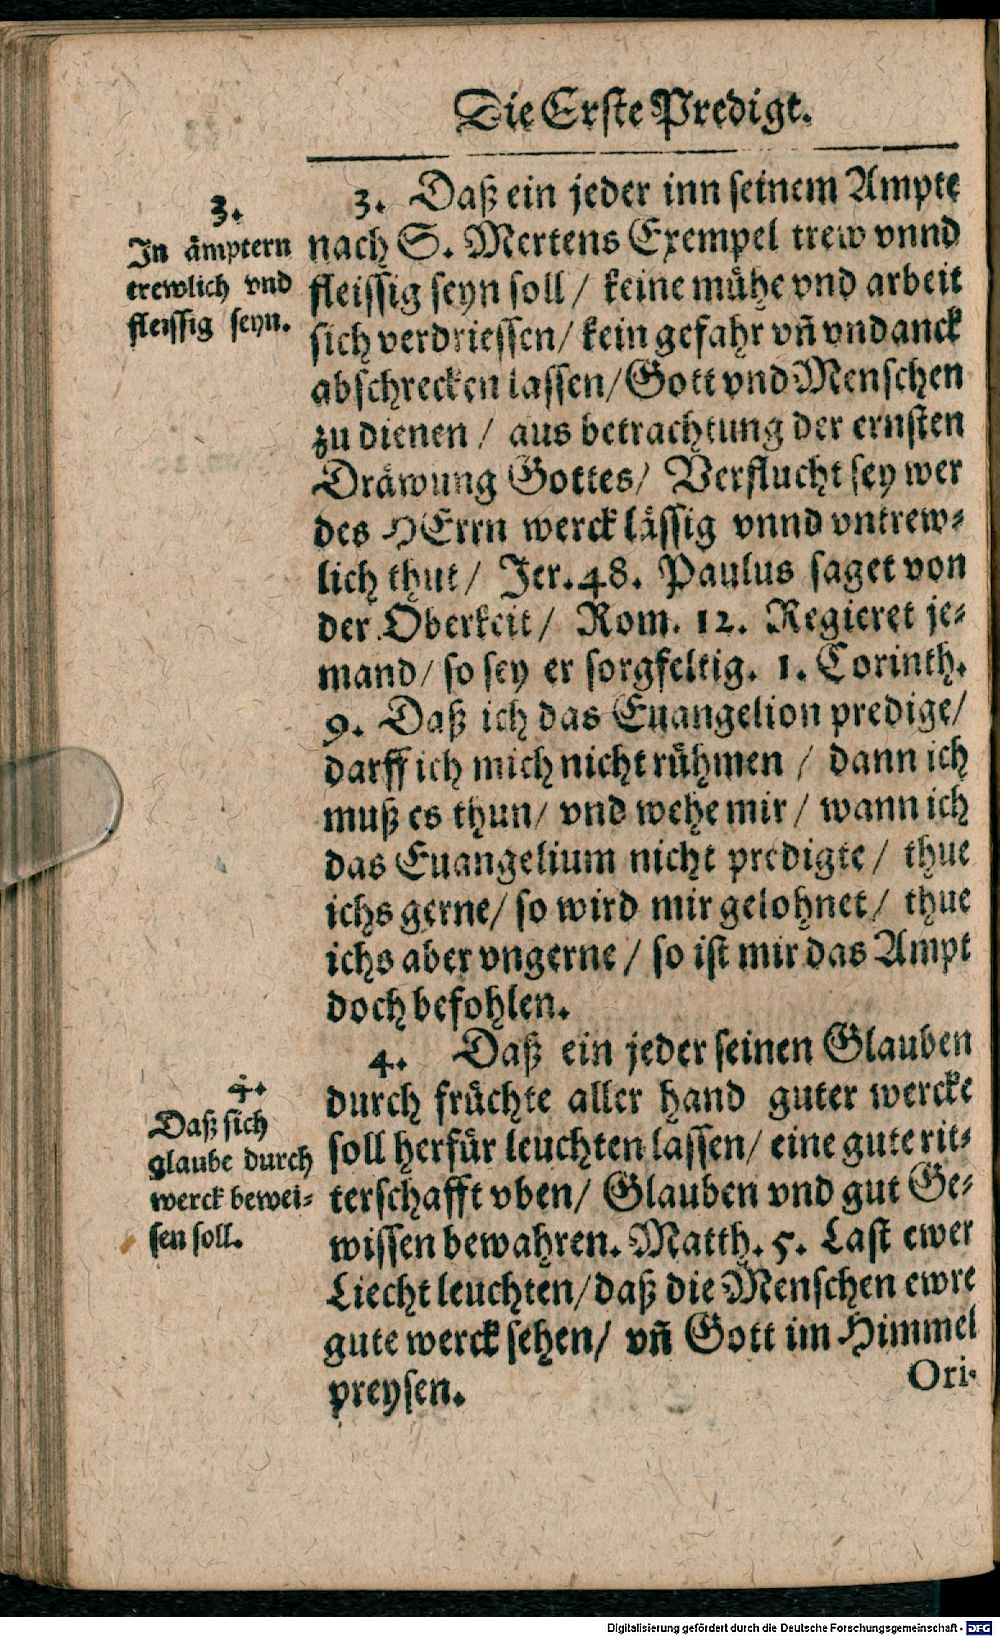 Die Erste Predigt.
3.
In ämptern
trewlich vnd
fleissig seyn.
3. Daß ein jeder inn seinem Ampte
nach S. Mertens Exempel trew vnnd
fleissig seyn soll / keine mühe vnd arbeit
sich verdriessen / kein gefahr vñ vndanck
abschrecken lassen / Gott vnd Menschen
zu dienen / aus betrachtung der ernsten
Dräwung Gottes / Verflucht sey wer
des HErrn werck lässig vnnd vntrew-
lich thut / Jer. 48. Paulus saget von
der Oberkeit / Rom. 12. Regieret je-
mand / so sey er sorgfeltig. 1. Corinth.
9. Daß ich das Euangelion predige /
darff ich mich nicht rühmen / dann ich
muß es thun / vnd wehe mir / wann ich
das Euangelium nicht predigte / thue
ichs gerne / so wird mir gelohnet / thue
ichs aber vngerne / so ist mir das Ampt
doch befohlen.
4.
Daß sich
glaube durch
werck bewei-
sen soll.
4. Daß ein jeder seinen Glauben
durch früchte aller hand guter wercke
soll herfür leuchten lassen / eine gute rit-
terschafft vben / Glauben vnd gut Ge-
wissen bewahren. Matth. 5. Last ewer
Liecht leuchten / daß die Menschen ewre
gute werck sehen / vñ Gott im Himmel
preysen.
Ori-
Digitalisierung gefördert durch die Deutsche Forschungsgemeinschaft - DFG